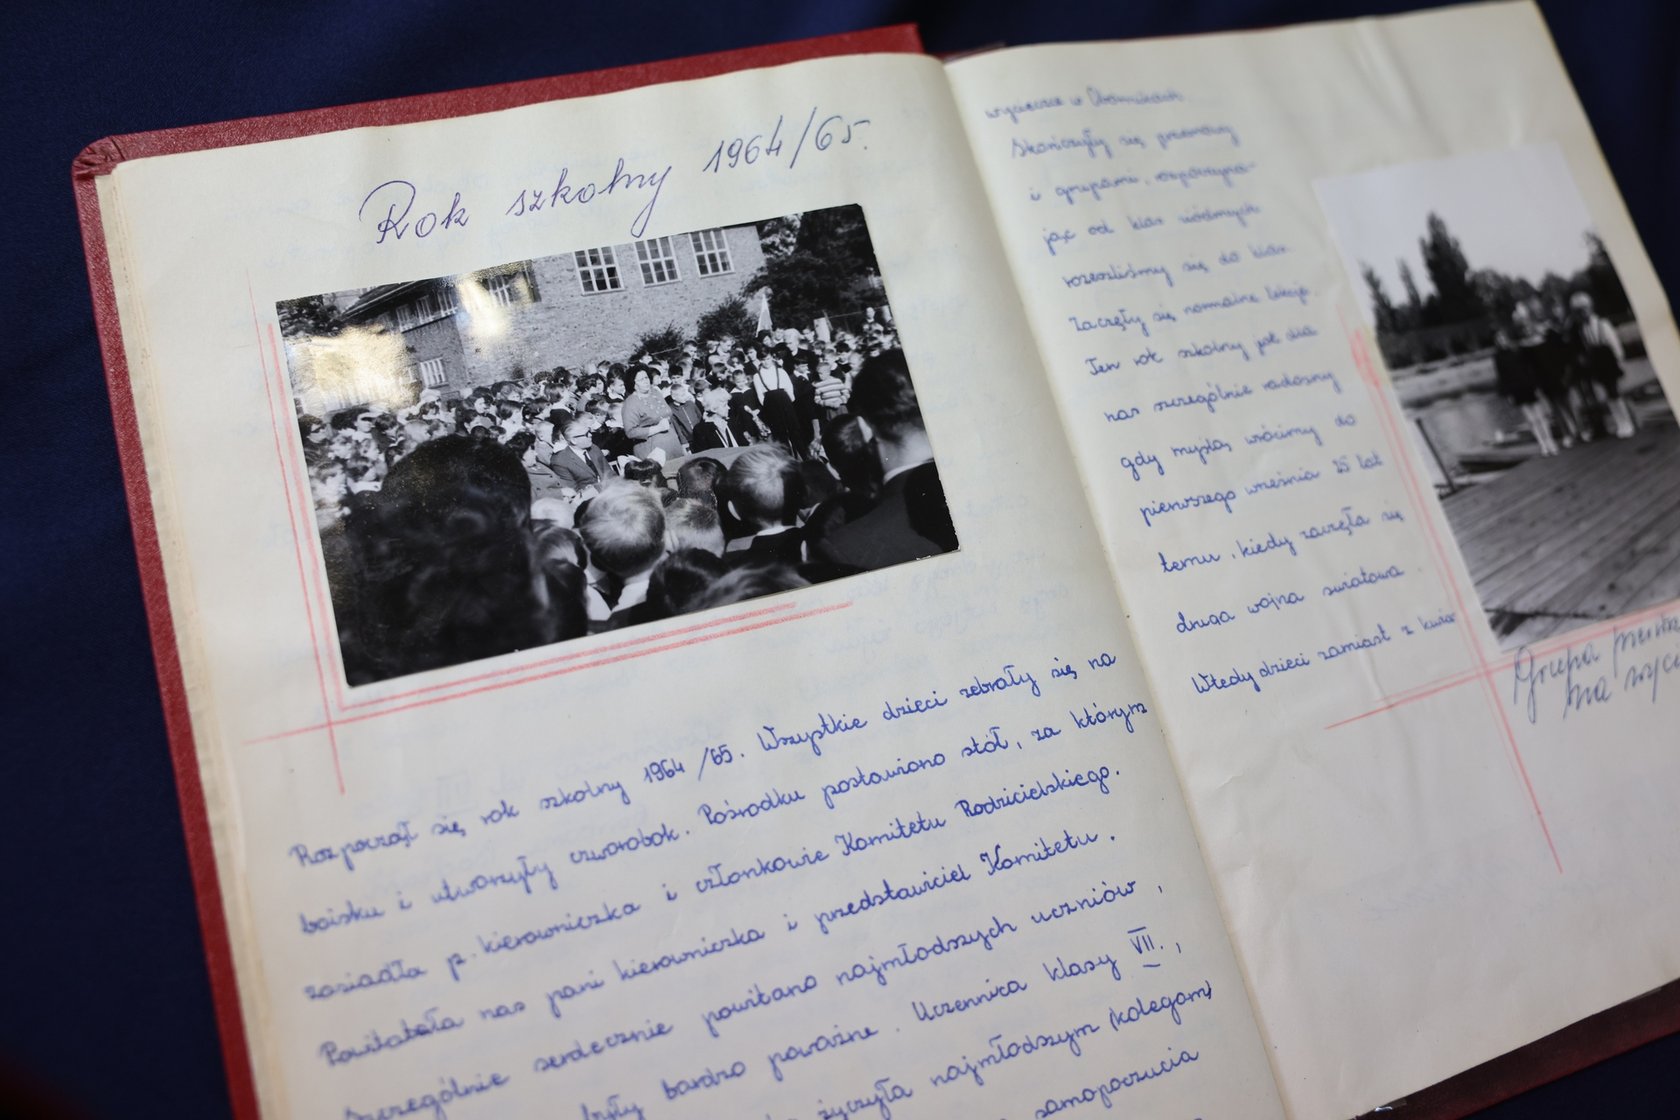 Rok szkolny 1964/65.
Rozpoczął się rok szkolny 1964/65. Wszystkie dzieci zebrały się na
boisku i utworzyły czworobok. Pośrodku postawiono stół, za którym
zasiadła p. kierowniczka i członkowie Komitetu Rodzicielskiego.
Powitała nas pani kierowniczka i przedstawiciel Komitetu.
Szczególnie serdecznie powitano najmłodszych uczniów,
były bardzo poważne. Uczennica klasy VII.,
życzyła najmłodszym kolegom
samopoczucia
w Obornikach
Skończyły się przemowy
i grupami, rozpoczyna-
jąc od klas siódmych
rozeszliśmy się do klas.
Zaczęły się normalne lekcje.
Ten rok szkolny jest dla
nas szczególnie radosny
gdy myślą wrócimy do
pierwszego września 25 lat
temu, kiedy zaczęła się
druga wojna światowa.
Wtedy dzieci zamiast z
Grupa
na